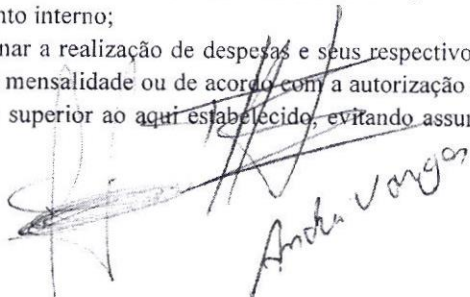 nto interno;
nar a realização de despesas e seus respectivo
mensalidade ou de acordo com a autorização
superior ao aqui estabelecido, evitando assur
Vargas